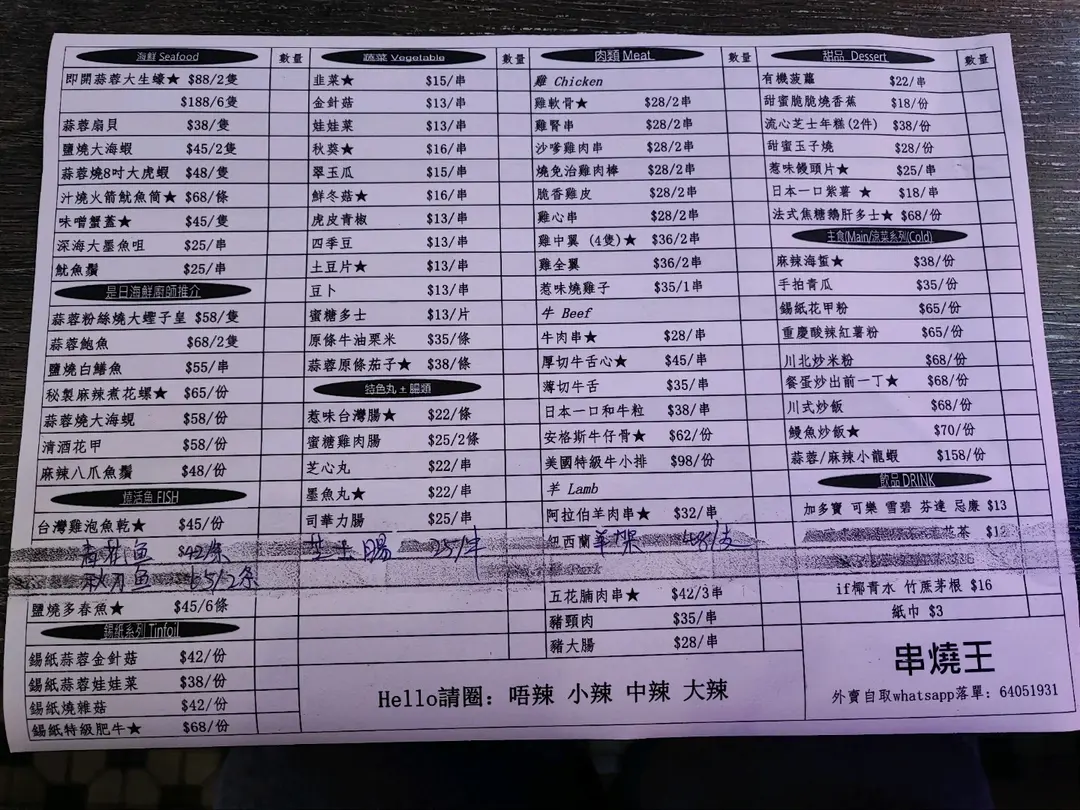 海鮮 Seafood 數量
即開蒜蓉大生蠔★ $88/2隻
$188/6隻
蒜蓉扇貝 $38/隻
鹽燒大海蝦 $45/2隻
蒜蓉燒8吋大虎蝦 $48/隻
汁燒火箭魷魚筒★ $68/條
味噌蟹蓋★ $45/隻
深海大墨魚咀 $25/串
魷魚鬚 $25/串
是日海鮮廚師推介
蒜蓉粉絲燒大蟶子皇 $58/隻
蒜蓉鮑魚 $68/2隻
鹽燒白鱔魚 $55/串
秘製麻辣煮花螺★ $65/份
蒜蓉燒大海蜆 $58/份
清酒花甲 $58/份
麻辣八爪魚鬚 $48/份
燒活魚 FISH
台灣雞泡魚乾★ $45/份
$42/条
秋刀魚 65/2条
鹽燒多春魚★ $45/6條
錫紙系列 Tinfoil
錫紙蒜蓉金針菇 $42/份
錫紙蒜蓉娃娃菜 $38/份
錫紙燒雜菇 $42/份
錫紙特級肥牛★ $68/份
蔬菜 Vegetable 數量
韭菜★ $15/串
金針菇 $13/串
娃娃菜 $13/串
秋葵★ $16/串
翠玉瓜 $15/串
鮮冬菇★ $16/串
虎皮青椒 $13/串
四季豆 $13/串
土豆片★ $13/串
豆卜 $13/串
蜜糖多士 $13/片
原條牛油粟米 $35/條
蒜蓉原條茄子★ $38/條
特色丸 ± 腸類
惹味台灣腸★ $22/條
蜜糖雞肉腸 $25/2條
芝心丸 $22/串
墨魚丸★ $22/串
司華力腸 $25/串
芝士腸 25/串
肉類 Meat 數量
雞 Chicken
雞軟骨★ $28/2串
雞腎串 $28/2串
沙嗲雞肉串 $28/2串
燒免治雞肉棒 $28/2串
脆香雞皮 $28/2串
雞心串 $28/2串
雞中翼 (4隻)★ $36/2串
雞全翼 $36/2串
惹味燒雞子 $35/1串
牛 Beef
牛肉串★ $28/串
厚切牛舌心★ $45/串
薄切牛舌 $35/串
日本一口和牛粒 $38/串
安格斯牛仔骨★ $62/份
美國特級牛小排 $98/份
羊 Lamb
阿拉伯羊肉串★ $32/串
紐西蘭羊架 48/支
Pork
五花腩肉串★ $42/3串
豬頸肉 $35/串
豬大腸 $28/串
甜品 Dessert 數量
有機菠蘿 $22/串
甜蜜脆脆燒香蕉 $18/份
流心芝士年糕(2件) $38/份
甜蜜玉子燒 $28/份
惹味饅頭片★ $25/串
日本一口紫薯 ★ $18/串
法式焦糖鵝肝多士★ $68/份
主食(Main/涼菜系列(Cold)
麻辣海蜇★ $38/份
手拍青瓜 $35/份
錫紙花甲粉 $65/份
重慶酸辣紅薯粉 $65/份
川北炒米粉 $68/份
餐蛋炒出前一丁★ $68/份
川式炒飯 $68/份
鰻魚炒飯★ $70/份
蒜蓉/麻辣小龍蝦 $158/份
飲品 DRINK
加多寶 可樂 雪碧 芬達 忌廉 $13
花茶
if椰青水 竹蔗茅根 $16
紙巾 $3
Hello請圈: 唔辣 小辣 中辣 大辣
串燒王
外賣自取whatsapp落單: 64051931